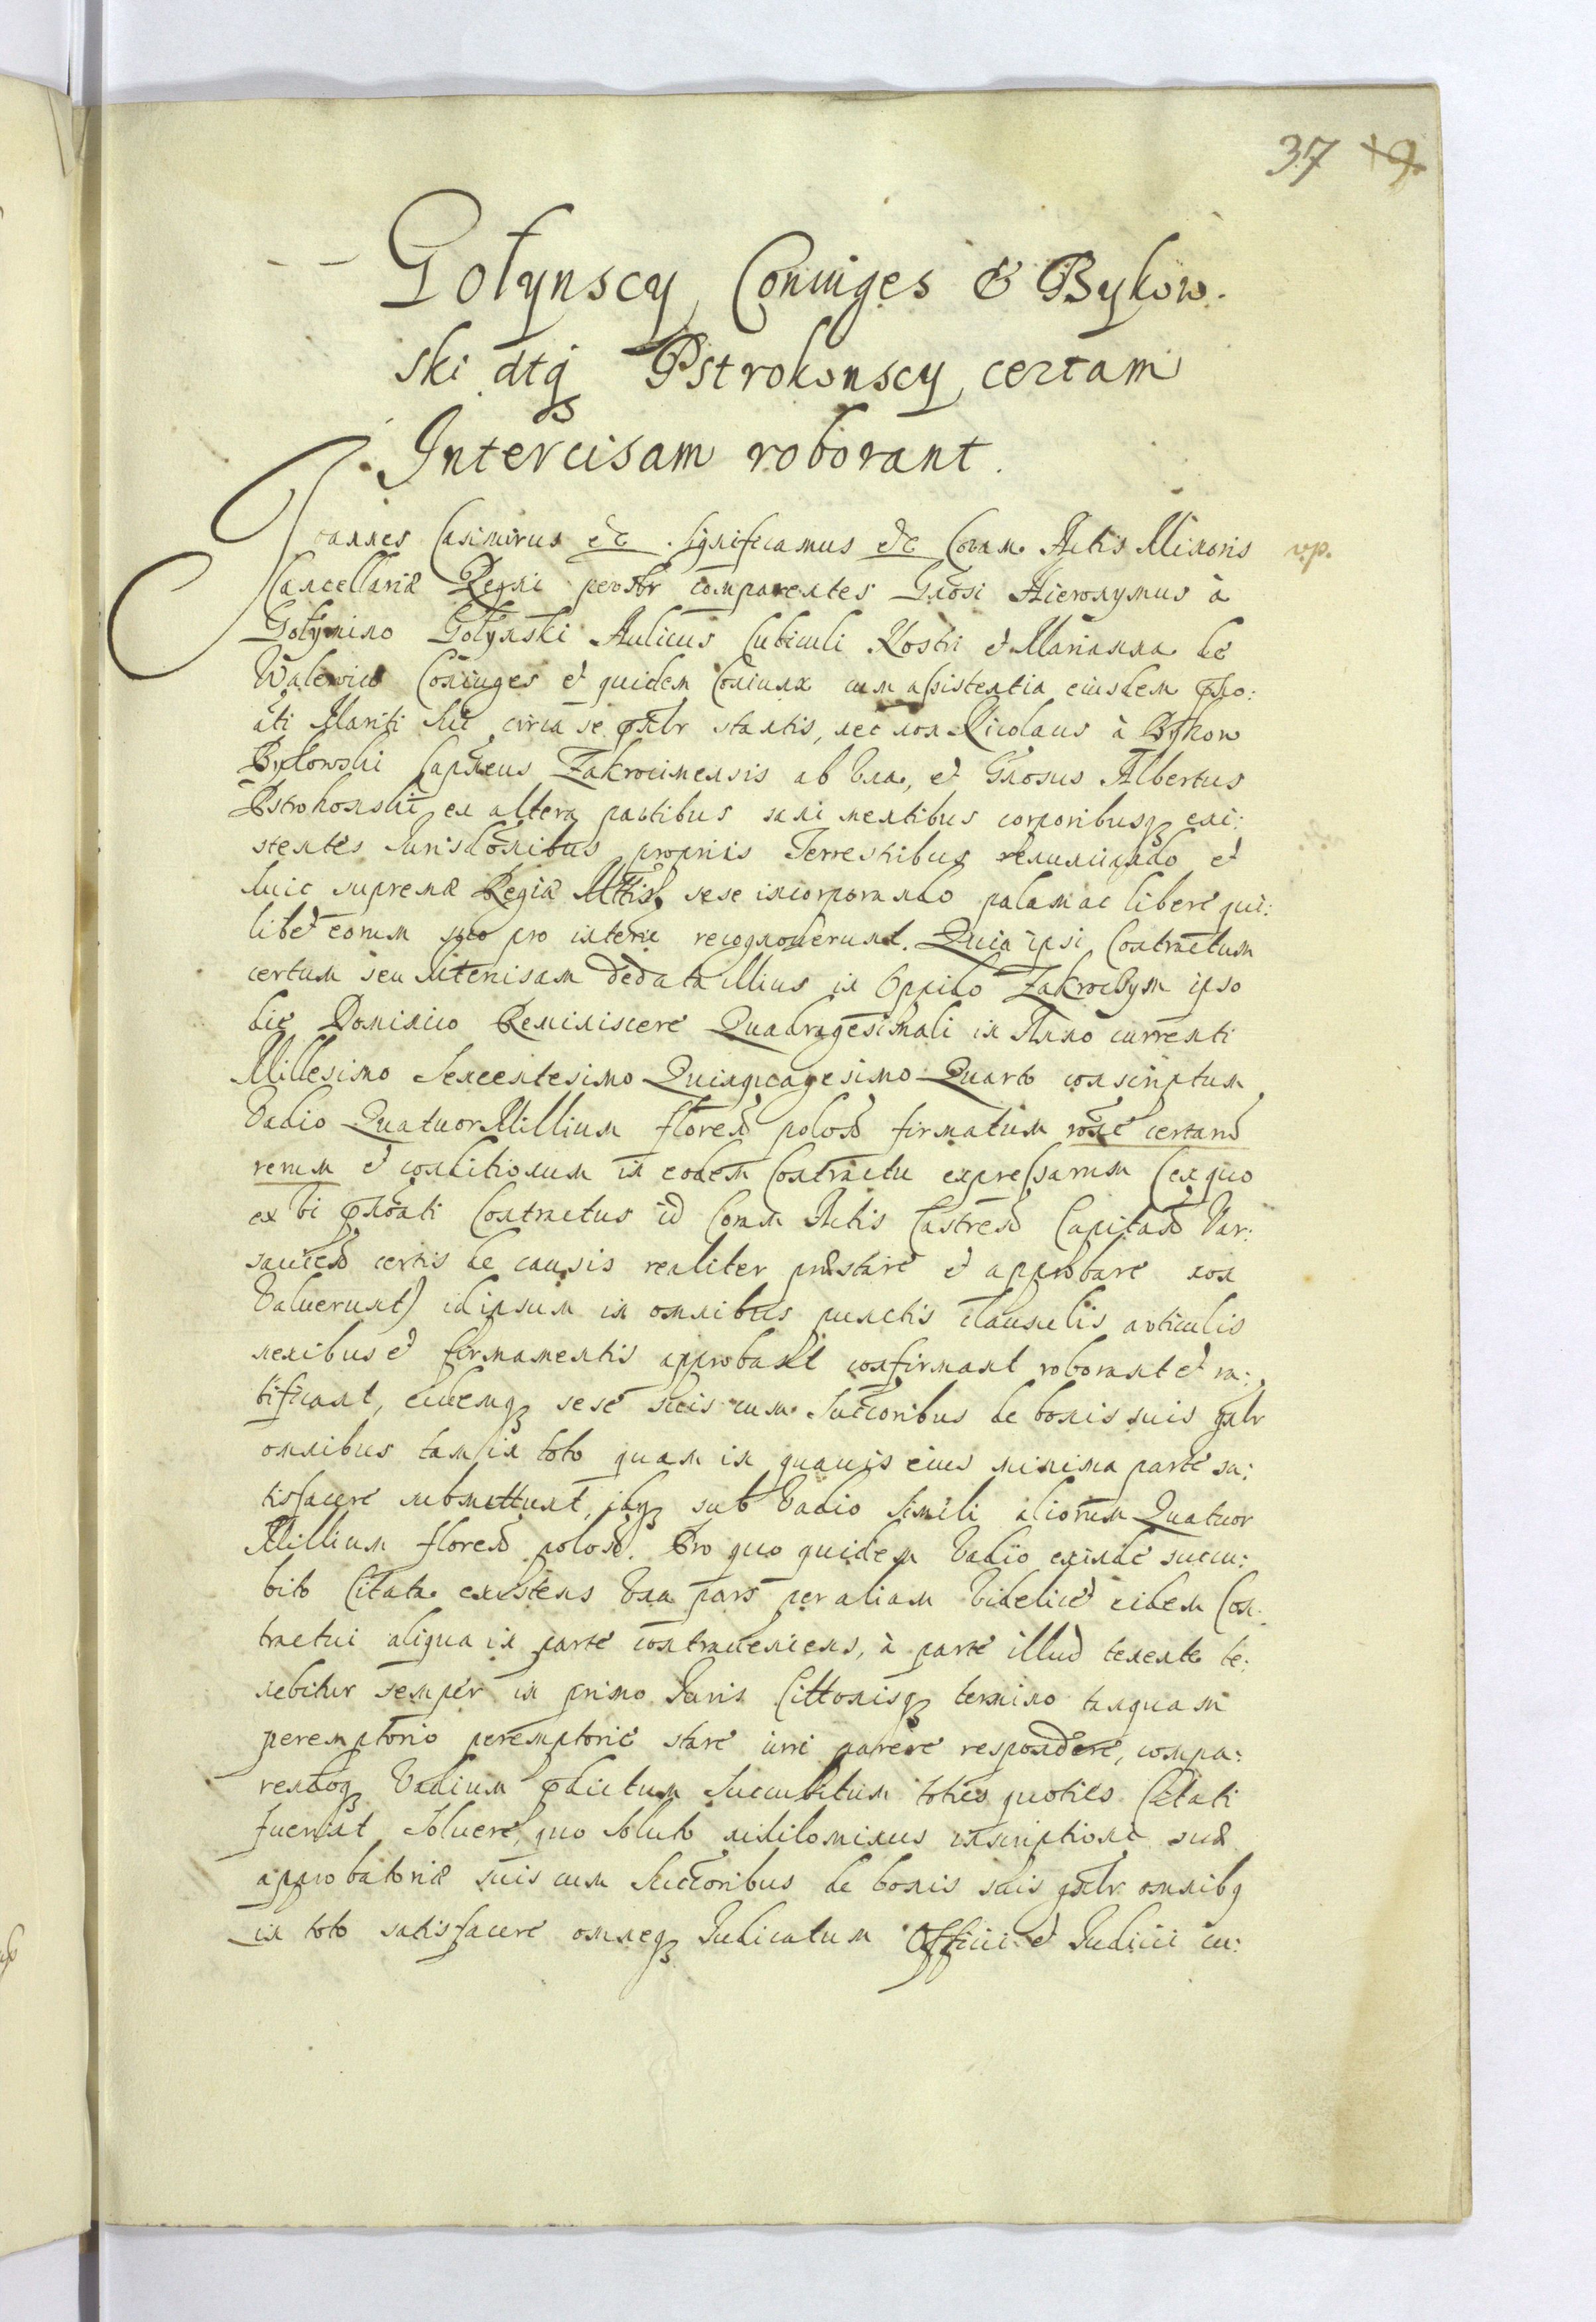 37 19.
Gołynscy Coniuges & Bykow.
ski atq₃ Pstrokonscy certam
Intercisam roborant.
Joannes Casimirus etc Significamus etc Coram Actis Minoris
Cancellariæ Regni personlr comparentes Gnosi Hieronymus à
Gołynino Gołynski Aulicus Cubiculi Nostri et Marianna de
Walewice Coniuges et quidem Coniunx cum assistentia eiusdem
ati Mariti sui circa se stantis, nec non Nicolaus à Bykow
Bykowski Capneus Zakrocimensis ab una, et Gnosus Albertus
Pstrokonski ex altera partibus sani mentibus corporibusq₃ exi:
stentes Jurisdonibus propriis Terrestribus renunciando et
huic supremæ Regiæ sese incorporando palam ac libere qui:
libet eorum pro recognoverunt. Quia ipsi Contractum
certum seu intercisam de data illius in Oppido Zakroczym ipso
die Dominico Reminiscere Quadragesimali in Anno currenti
Millesimo Sexcentesimo Quinquagesimo Quarto conscriptum
Vadio Quatuor Millium floren polon firmatum rone certarum
rerum et conditionum in eodem Contractu expressarum (ex quo
ex vi Contractus id Coram Actis Castren Capitan Var:
savien certis de causis realiter præstare et approbare non
valuerunt) idipsum in omnibus punctis clausulis articulis
nexibus et firmamentis approbant confirmant roborant et ra:
tificant, eidemq₃ sese suis cum Succoribus de bonis suis gnlr
omnibus tam in toto quam in quavis eius minima parte sa:
tisfacere submittunt, idq₃ sub Vadio simili aliorum Quatuor
Millium floren polon. Pro quo quidem Vadio exinde succu:
bito Citata existens una pars per aliam videlicet eidem Con:
tractui aliqua in parte contraveniens, à parte illud tenente te:
nebitur semper in primo Juris Cittonisq₃ termino tanquam
peremptorio peremptorie stare iuri parere respondere, compa:
rendoq₃ Vadium Succubitum toties quoties Citati
fuerint Solvere, quo Soluto nihilominus inscriptioni suæ
approbatoriæ suis cum Succoribus de bonis suis gnlr omnibq
in toto satisfacere omneq₃ Judicatum Officii et Judicii cu: